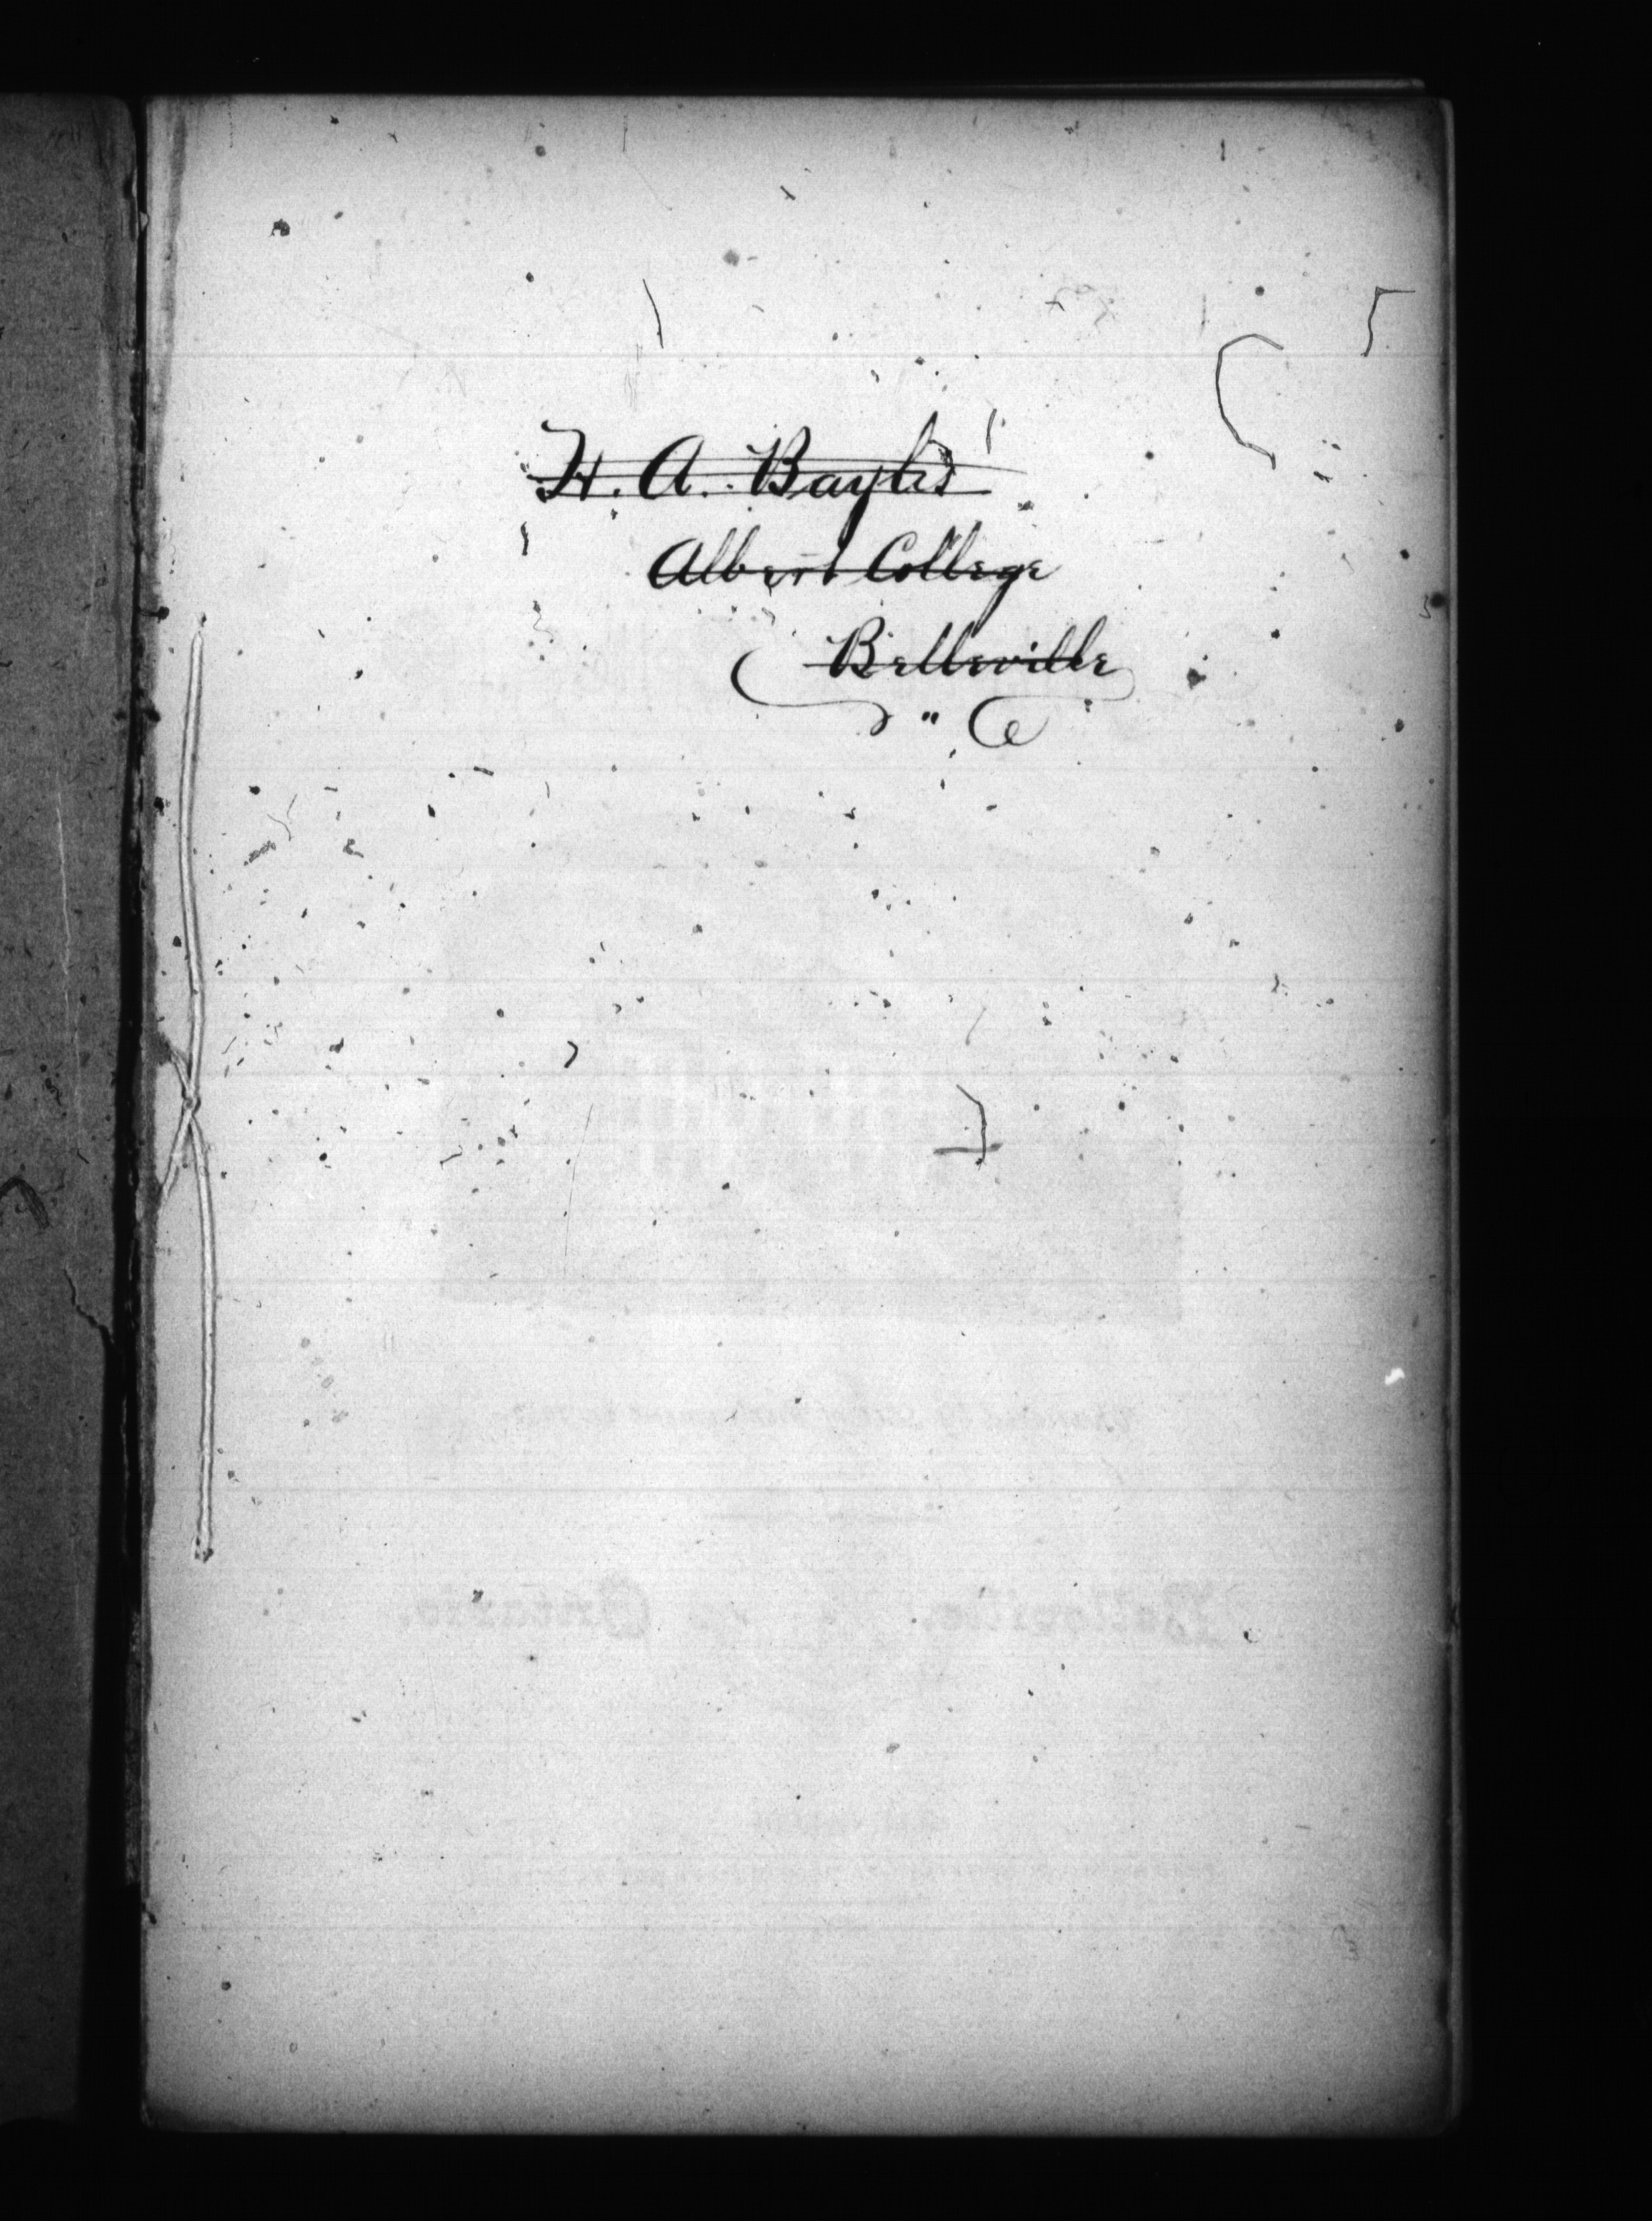 H. A. Baylis
Albert College
Belleville
"